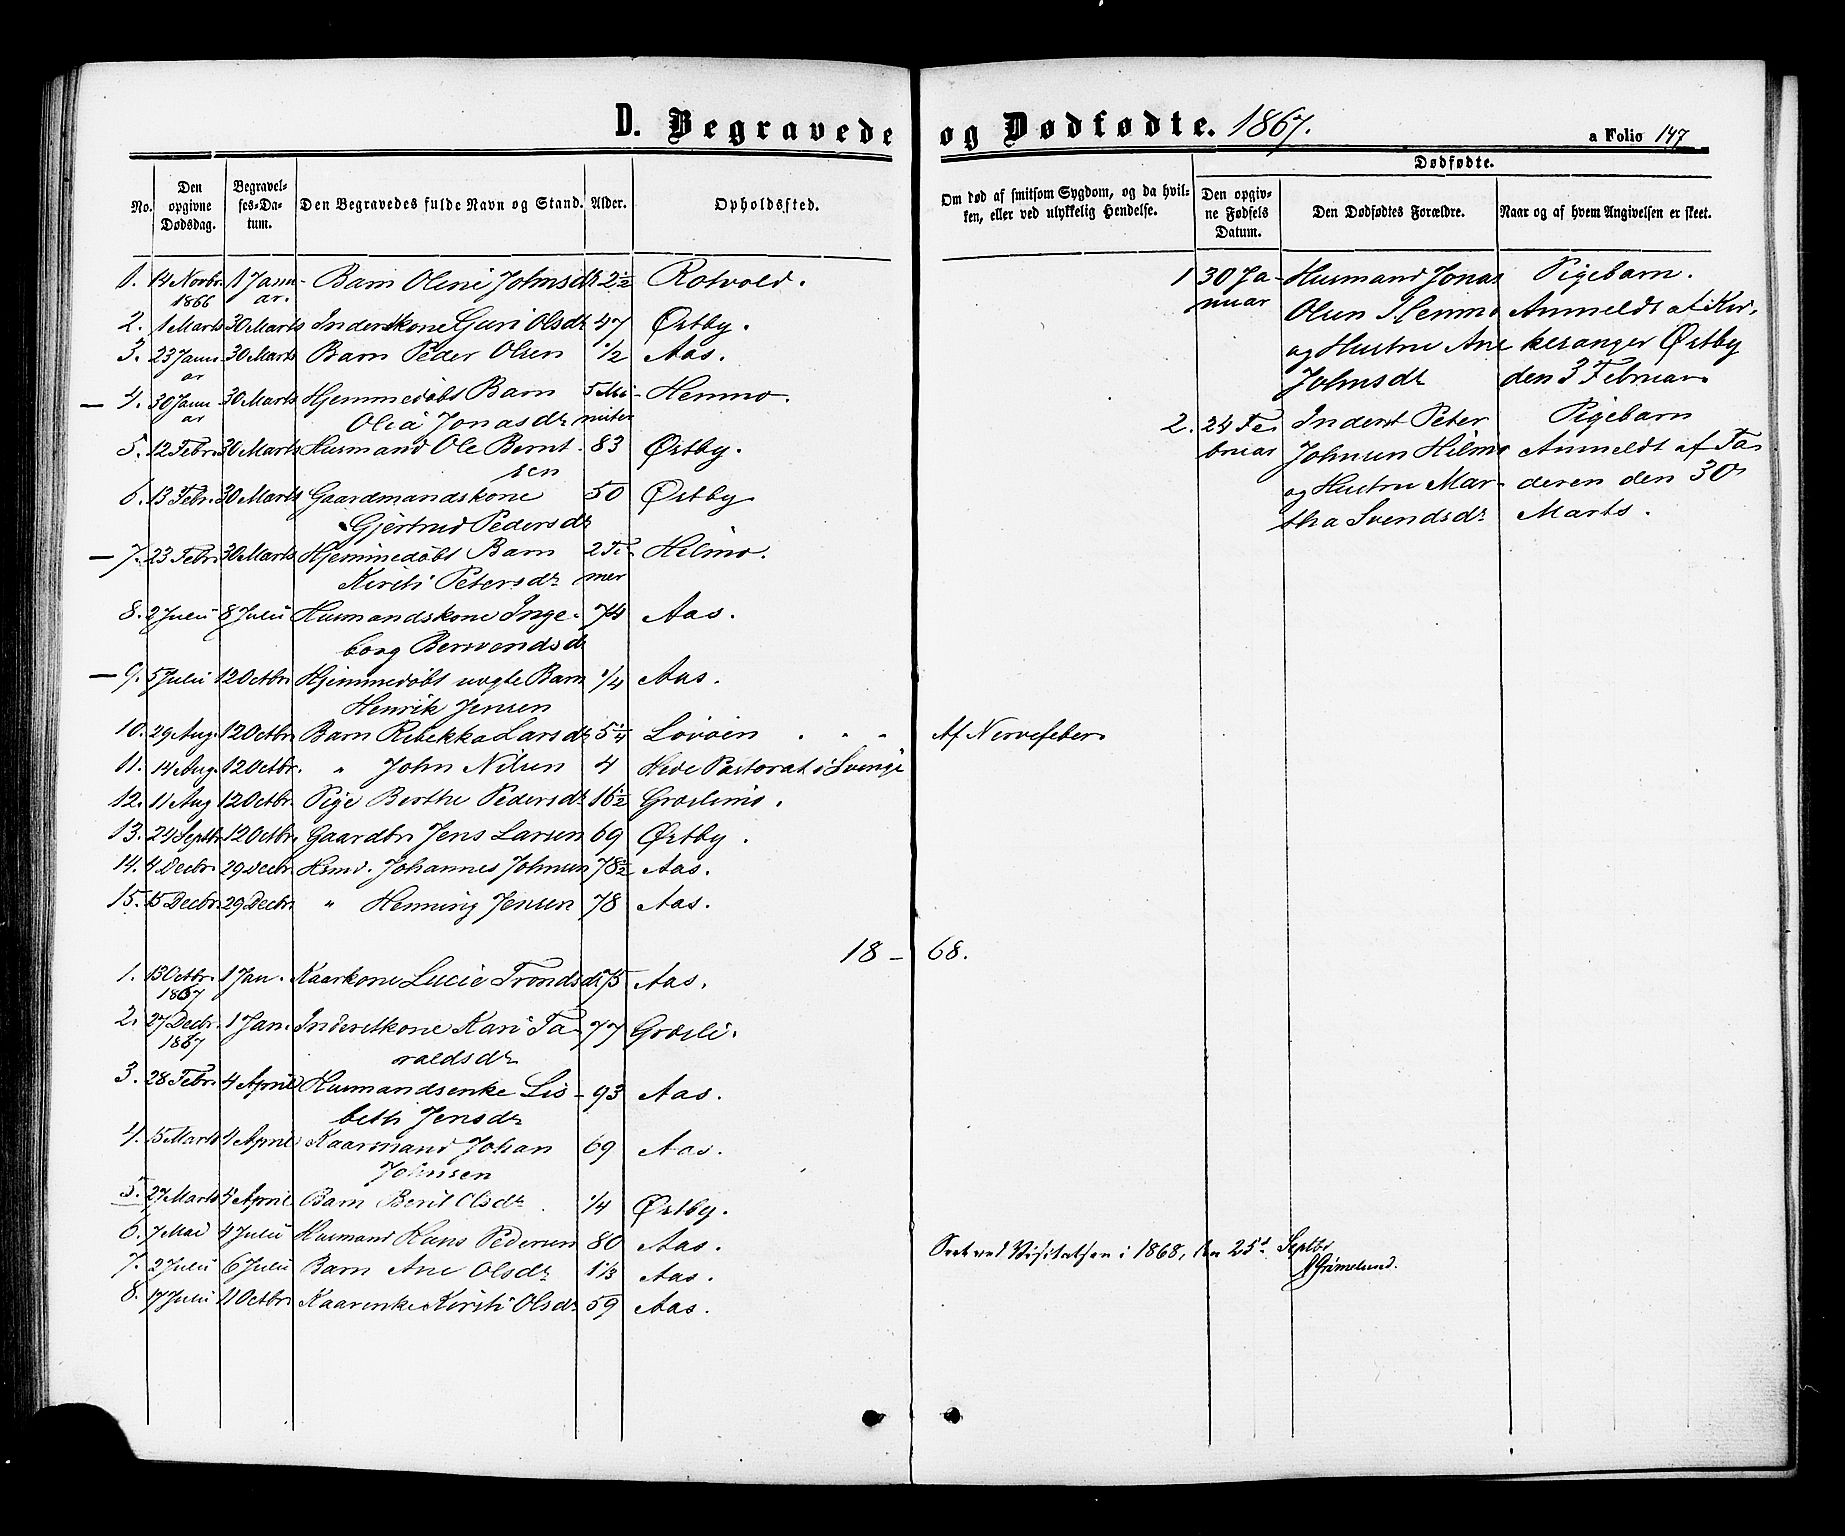 D. Begravede og Dødfødte. 1867.
a Folio 147
No.
Den opgivne Dødsdag.
Begravelses-Datum.
Den Begravedes fulde Navn og Stand.
Alder.
Opholdssted.
Om død af smitsom Sygdom, og da hvilken, eller ved ulykkelig Hendelse.
Dødfødte.
Den opgivne Fødsels Datum.
Den Dødfødtes Forældre.
Naar og af hvem Angivelsen er skeet.
1. 14 Novbr. 1 Janu- Barn Olene Johnsdr 2½ Rotvold.
1866 ar.
2. 1 Marts 30 Marts Inderstkone Guri Olsdr 47 Østby.
3. 23 Janu 30 Marts Barn Peder Olsen ½ Aas.
ar
4. 30 Janu 30 Marts Hjemmedøbt Barn 5 Mi- Hemmo.
ar Olia Jonasdr nuter
5. 12 Febr. 30 Marts Husmand Ole Bernt- 83 Østby.
sen
6. 13 Febr. 30 Marts Gaardmandskone 50 Østby
Gjertrud Pedersdr
7. 23 Febr. 30 Marts Hjemmedøbt Barn 2 Ti- Hilmo.
Kirsti Petersdr mer
8. 2 Juli 8 Juli Husmandskone Inge- 74 Aas.
borg Berwendsd
9. 5 Juli 12 Octbr. Hjemmedøbt uegte Barn ¼ Aas.
Henrik Jensen
10. 29 Aug. 12 Octbr. Barn Rebekka Larsdr 5¼ Løvøen " " Af Nervefeber
11. 14 Aug. 12 Octbr. " John Nilsen 4 Hede Pastorat i Sverige
12. 11 Aug 12 Octbr. Pige Berthe Pedersdr 16½ Græslimo.
13. 24 Septbr. 12 Octbr. Gaardbr. Jens Larsen 69 Østby.
14. 4 Decbr. 29 Decbr. Hsmd. Johannes Johnsen 78½ Aas.
15. 15 Decbr. 29 Decbr. " Henning Jensen 78 Aas.
18 - 68.
1. 13 Octbr. 1 Jan. Kaarkone Lucie Trondsdr 75 Aas.
1867
2. 27 Decbr. 1 Jan. Inderstkone Kari Ta- 77 Græsli.
1867 raldsdr
3. 28 Febr. 4 April Husmandsenke Lis- 93 Aas.
beth Jensdr
4. 5 Marts 4 April Kaarmand Johan 69 Aas.
Johnsen
5. 27 Marts 4 April Barn Berit Olsdr ¼ Østby.
6. 7 Mai 4 Juli Husmand Hans Pedersen 80 Aas.
7. 2 Juli 6 Juli Barn Ane Olsdr 1⅓ Aas.
8. 17 Juli 11 Octbr. Kaarenke Kirsti Olsdr 59 Aas.
1 30 Ja- Husmand Jonas Pigebarn.
nuar Olsen Hemmo Anmeldt af Kir-
og Hustru Ane kesanger Østby
Johnsdr den 3 Februar
2. 24 Fe- Inderst Peter Pigebarn
bruar Johnsen Hilmo Anmeldt af Fa-
og Hustru Mar- deren den 30
tha Svendsdr Marts.
Seet ved Visitatsen i 1868, den 25d Septbr
Grimelund.